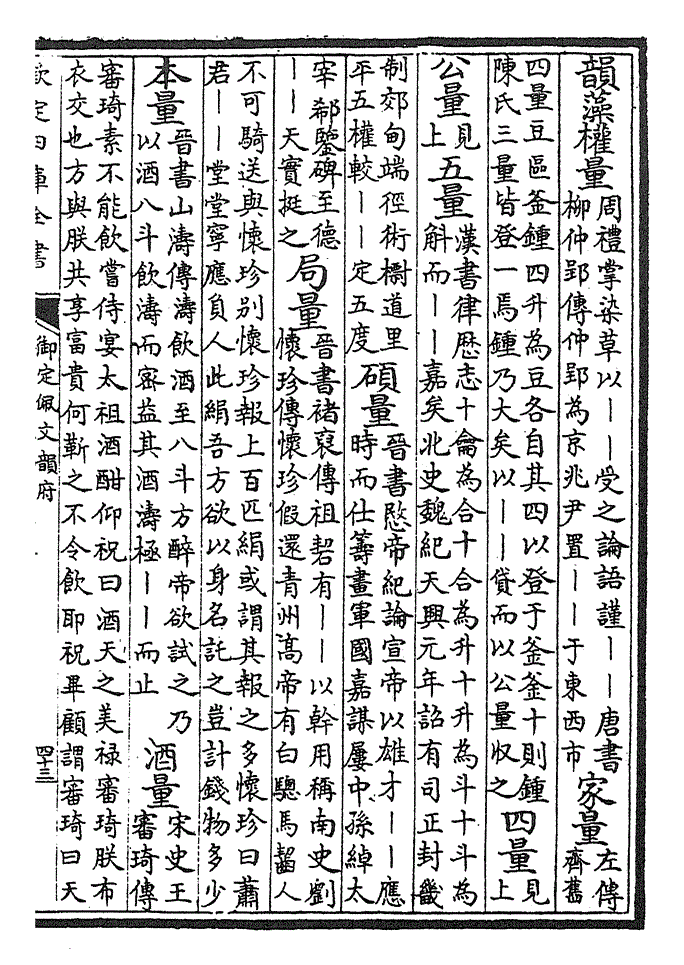 韻藻權量
周禮掌染草以——受之論語謹——唐書
柳仲郢傳仲郢為京兆尹置——于東西市
家量
左傳
齊舊
四量豆區釜鍾四升為豆各自其四以登于釜釜十則鍾
陳氏三量皆登一焉鍾乃大矣以——貸而以公量收之
四量
見
上
公量
見
上
五量
漢書律歷志十龠為合十合為升十升為斗十斗為
斛而——嘉矣北史魏紀天興元年詔有司正封畿
制郊甸端徑術標道里
平五權較——定五度
碩量
晉書愍帝紀論宣帝以雄才——應
時而仕籌畫軍國嘉謀屢中孫綽太
宰郗鑒碑至德
——天實挺之
局量
晉書褚裒傳祖䂮有——以幹用稱南史劉
懷珍傳懷珍假還青州高帝有白驄馬齧人
不可騎送與懷珍别懷珍報上百匹絹或謂其報之多懷珍曰蕭
君——堂堂寧應負人此絹吾方欲以身名託之豈計錢物多少
本量
晉書山濤傳濤飲酒至八斗方醉帝欲試之乃
以酒八斗飲濤而密益其酒濤極——而止
酒量
宋史王
審琦傳
審琦素不能飲嘗侍宴太祖酒酣仰祝曰酒天之美禄審琦朕布
衣交也方與朕共享富貴何靳之不令飲耶祝畢顧謂審琦曰天
欽定四庫全書
御定佩文韻府
四十三